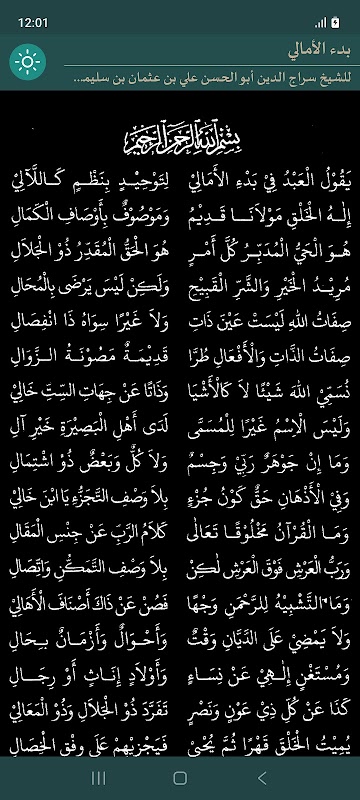 12:01
بدء الأمالي
للشيخ سراج الدين أبو الحسن علي بن عثمان بن سليمـ...
بِسْمِ اللَّهِ الرَّحْمَنِ الرَّحِيمِ
يَقُوْلُ الْعَبْدُ فِيْ بَدْءِ الأَمَالِيْ لِتَوْحِيْدٍ بِنَظْمٍ كَاللَّآلِيْ
إِلَـهُ الْخَلْقِ مَوْلَانَـا قَدِيْمُ وَمَوْصُوْفٌ بِأَوْصَافِ الْكَمَالِ
هُـوَ الْحَيُّ الْمُدَبِّـرُ كُلَّ أَمْـرٍ هُوَ الْحَقُّ الْمُقَدِّرُ ذُو الْجَلَالِ
مُرِيْـدُ الْخَيْرِ وَالشَّرِّ الْقَبِيْحِ وَلَكِنْ لَيْسَ يَرْضَى بِالْمُحَالِ
صِفَاتُ اللهِ لَيْسَتْ عَيْنَ ذَاتِ وَلاَ غَيْرًا سِوَاهُ ذَا انْفِصَالِ
صِفَاتُ الذَّاتِ وَالْأَفْعَالِ طُرًّا قَدِيْمَةٌ مَصُوْنَـةُ الزَّوَالِ
نُسَمِّي اللهَ شَيْئًا لَا كَالْأَشْيَا وَذَاتًا عَنْ جِهَاتِ السِّتِّ خَالِيْ
وَلَيْسَ الْاِسْمُ غَيْرًا لِلْمُسَمَّى لَدَى أَهْلِ الْبَصِيْرَةِ خَيْرِ آلِ
وَمَا إِنْ جَوْهَرٌ رَبِّيْ وَجِسْمٌ وَلَا كُلٌّ وَبَعْضٌ ذُو اشْتِمَالِ
وَفِيْ الْأَذْهَانِ حَقٌّ كَوْنُ جُزْءٍ بِلَا وَصْفِ التَّجَزُّءِ يَا ابْنَ خَالِيْ
وَمَا الْقُرْآنُ مَخْلُوْقًا تَعَالَى كَلَامُ الرَّبِّ عَنْ جِنْسِ الْمَقَالِ
وَرَبُّ الْعَرْشِ فَوْقَ الْعَرْشِ لَكِنْ بِلَا وَصْفِ التَّمَكُّنِ وَاتِّصَالِ
وَمَا التَّشْبِيْهُ لِلرَّحْمَنِ وَجْهًا فَصُنْ عَنْ ذَاكَ أَصْنَافَ الْأَهَالِيْ
وَلَا يَمْضِيْ عَلَى الدَّيَّانِ وَقْتٌ وَأَحْوَالٌ وَأَزْمَانٌ بِـحَالِ
وَمُسْتَغْنٍ إِلَهِيْ عَنْ نِسَاءٍ وَأَوْلَادٍ إِنَاثٍ أَوْ رِجَـالِ
كَذَا عَنْ كُلِّ ذِيْ عَوْنٍ وَنَصْرٍ تَفَرَّدَ ذُو الْجَلَالِ وَذُو الْمَعَالِيْ
يُمِيْتُ الْخَلْقَ قَهْرًا ثُمَّ يُحْيِيْ فَيَجْزِيْهِمْ عَلَى وِفْقِ الْخِصَالِ